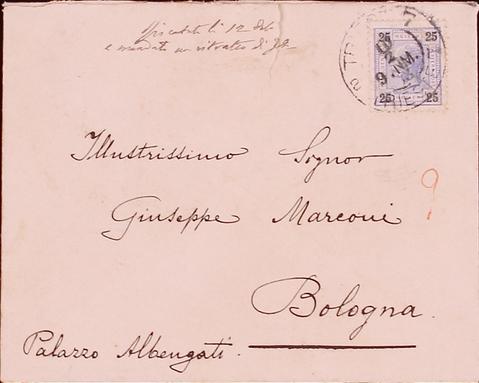 li 12
e mandato un ritratto di
25 25
TR
9
25 25
Illustrissimo Signor
Giuseppe Marconi
9
Bologna.
Palazzo Albengati.